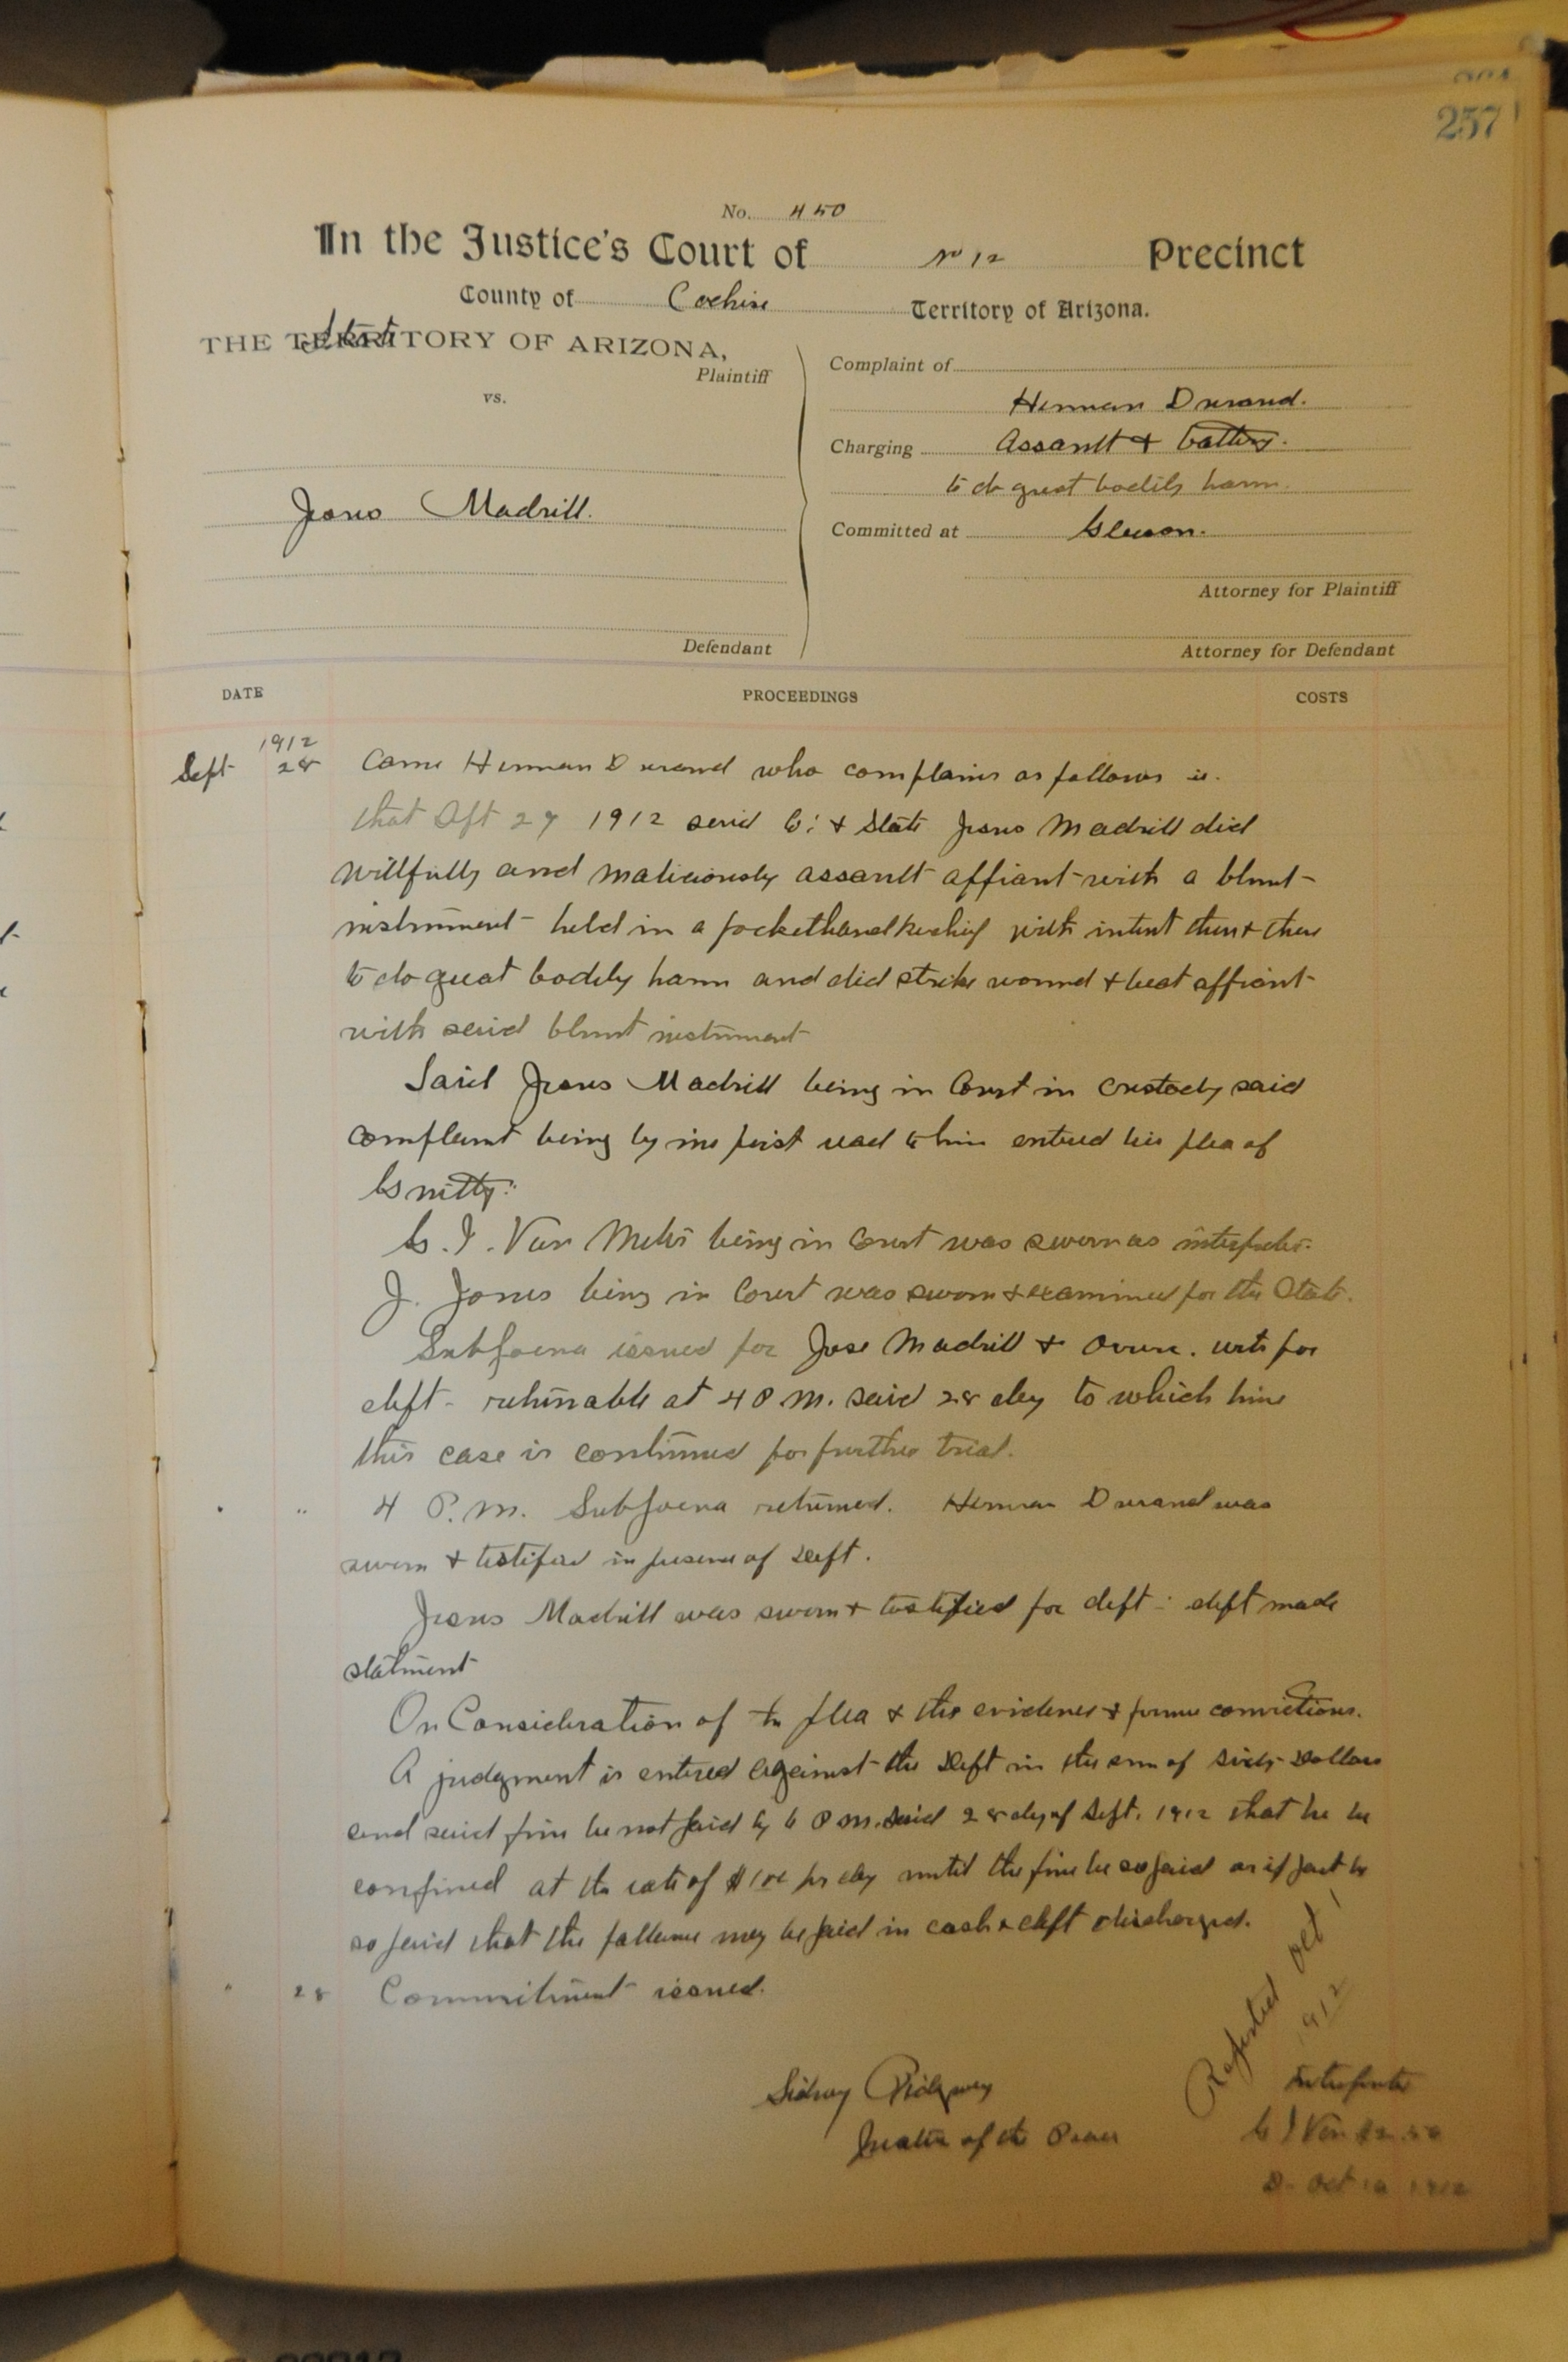 257
No. 450
In the Justice's Court of No 12 Precinct
County of Cochise Territory of Arizona.
State
THE TERRITORY OF ARIZONA,
Plaintiff
vs.
Jesus Madrill.
Defendant
Complaint of
Herman Durand.
Charging Assault & battery.
to do great bodily harm.
Committed at Gleeson.
Attorney for Plaintiff
Attorney for Defendant
DATE PROCEEDINGS COSTS
1912
Sept 28 Came Herman Durand who complains as follows is.
that Sept 27 1912 said Co: & State Jesus Madrill did
willfully and maliciously assault affiant with a blunt
instrument held in a pockethandkerchief with intent then & there
to do great bodily harm and did strike wound & beat affiant
with said blunt instrument
Said Jesus Madrill being in Court in custody said
complaint being by me first read to him entered his plea of
Guilty.
G. J. Van being in Court was sworn as interpreter.
J. Jones being in Court was sworn & examined for the State.
Subpoena issued for Jose Madrill & wits for
deft - returnable at 4 P.M. said 28 day to which time
this case is continued for further trial.
" " 4 P.M. Subpoena returned. Herman Durand was
sworn & testified in presence of Deft.
Jesus Madrill was sworn & testified for deft - deft made
statment
On Consideration of the plea & the evidence & former convictions.
A judgment is entered against the Deft in the sum of Sixty Dollars
and said fine be not paid by 6 P.M. said 28 day of Sept. 1912 that he be
confined at the rate of $1.00 per day until the fine be so paid or if part be
so paid that the ballance may be paid in cash & deft discharged.
" 28 Commitment issued.
Sidney Ridgway
Justice of the Peace
Reported Oct 1
1912
Interpreter
G J Van $2.50
Oct 10 1912